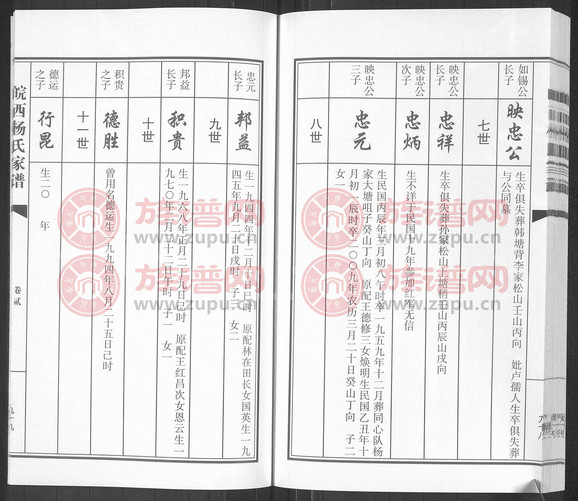 如锡公
长子
映忠公
生卒俱失葬韩塘背李家松山壬山丙向 妣卢孺人生卒俱失葬
与公同墓
七世
映忠公
长子
忠祥
生卒俱失葬孙家松山上塘稍壬山丙辰山戌向
映忠公
次子
忠炳
生不详于民国十九年参加红军无信
映忠公
三子
忠元
生民国丙辰年三月初八午时卒一九五九年十二月葬同心队杨
家大塘咀子癸山丁向 原配王德修三女焕明生民国乙丑年十
月初一辰时卒二00九年农历三月二十日癸山丁向 子二
女一
八世
忠元
长子
邦益
生一九四四年十二月十日巳时 原配林在田长女国英生一九
四五年九月二十日戌时 子一 女二
九世
邦益
长子
积贵
生一九六八年正月二十九日巳时 原配王红昌次女恩云生一
九七0年二月二十二日午时 子一 女一
十世
积贵
之子
德胜
曾用名德运生一九九四年八月二十五日己时
十一世
德运
之子
行昆
生二0 年
皖西杨氏家谱
卷贰
族谱网
www.zupu.cn
族谱网
www.zupu.cn
族谱网
www.zupu.cn
族谱网
www.zupu.cn